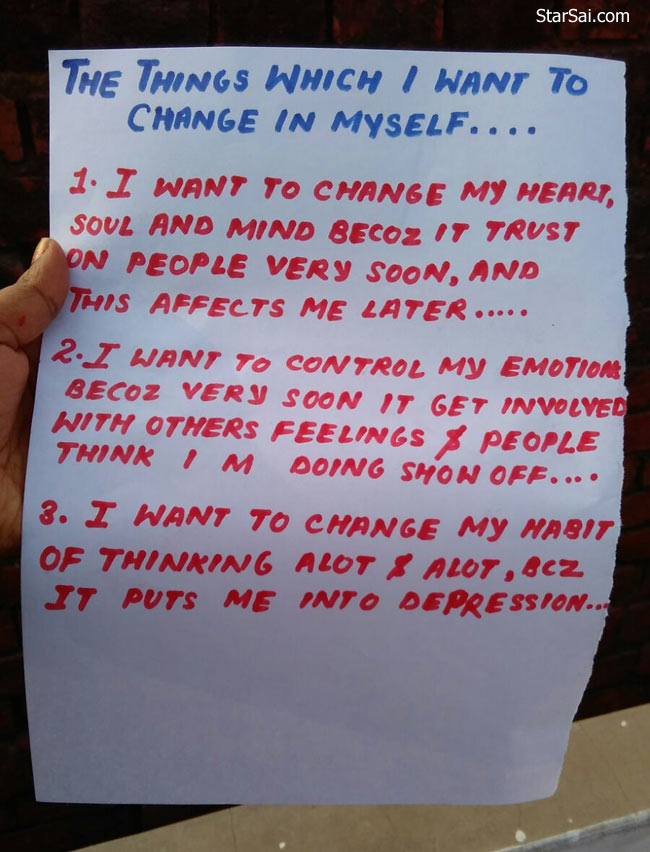 StarSai.com
THE THINGS WHICH I WANT TO
CHANGE IN MYSELF....
1. I WANT TO CHANGE MY HEART,
SOUL AND MIND BECOZ IT TRUST
ON PEOPLE VERY SOON, AND
THIS AFFECTS ME LATER.....
2. I WANT TO CONTROL MY EMOTIONS
BECOZ VERY SOON IT GET INVOLVED
WITH OTHERS FEELINGS & PEOPLE
THINK I M DOING SHOW OFF....
3. I WANT TO CHANGE MY HABIT
OF THINKING ALOT & ALOT, BCZ
IT PUTS ME INTO DEPRESSION...